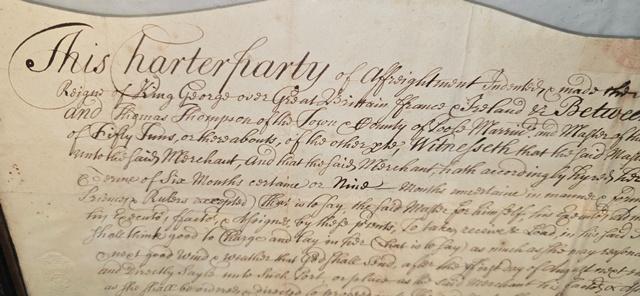 This Charterparty of Affreightment Indented, & made the
Reigne of King George over Great Brittain ffrance & Ireland &c Betwee
and Thomas Thompson of the Town & County of Poole Marriner and Master of the
of Fifty Tuns, or thereabouts, of the other pte, Witnesseth that the said Mas
unto the said Merchant, And that the said Merchant, hath accordingly hyred
terme of Six Months certaine or Nine Months uncertaine in manner
Princes & Rulers excepted) That is to say, the said Master for him self, his Execut
his Executors, ffactors, & Assignes, by these pesents, To take, receive & Load in the said
shall think good to Charge and lay in her (that is to say) as much as she may
next good Wind & weather that God shall Send, after the first day of August next
and Directly Sayle unto Such Port, or place as the said Merchant his factors
as she shall be ordered & directed to